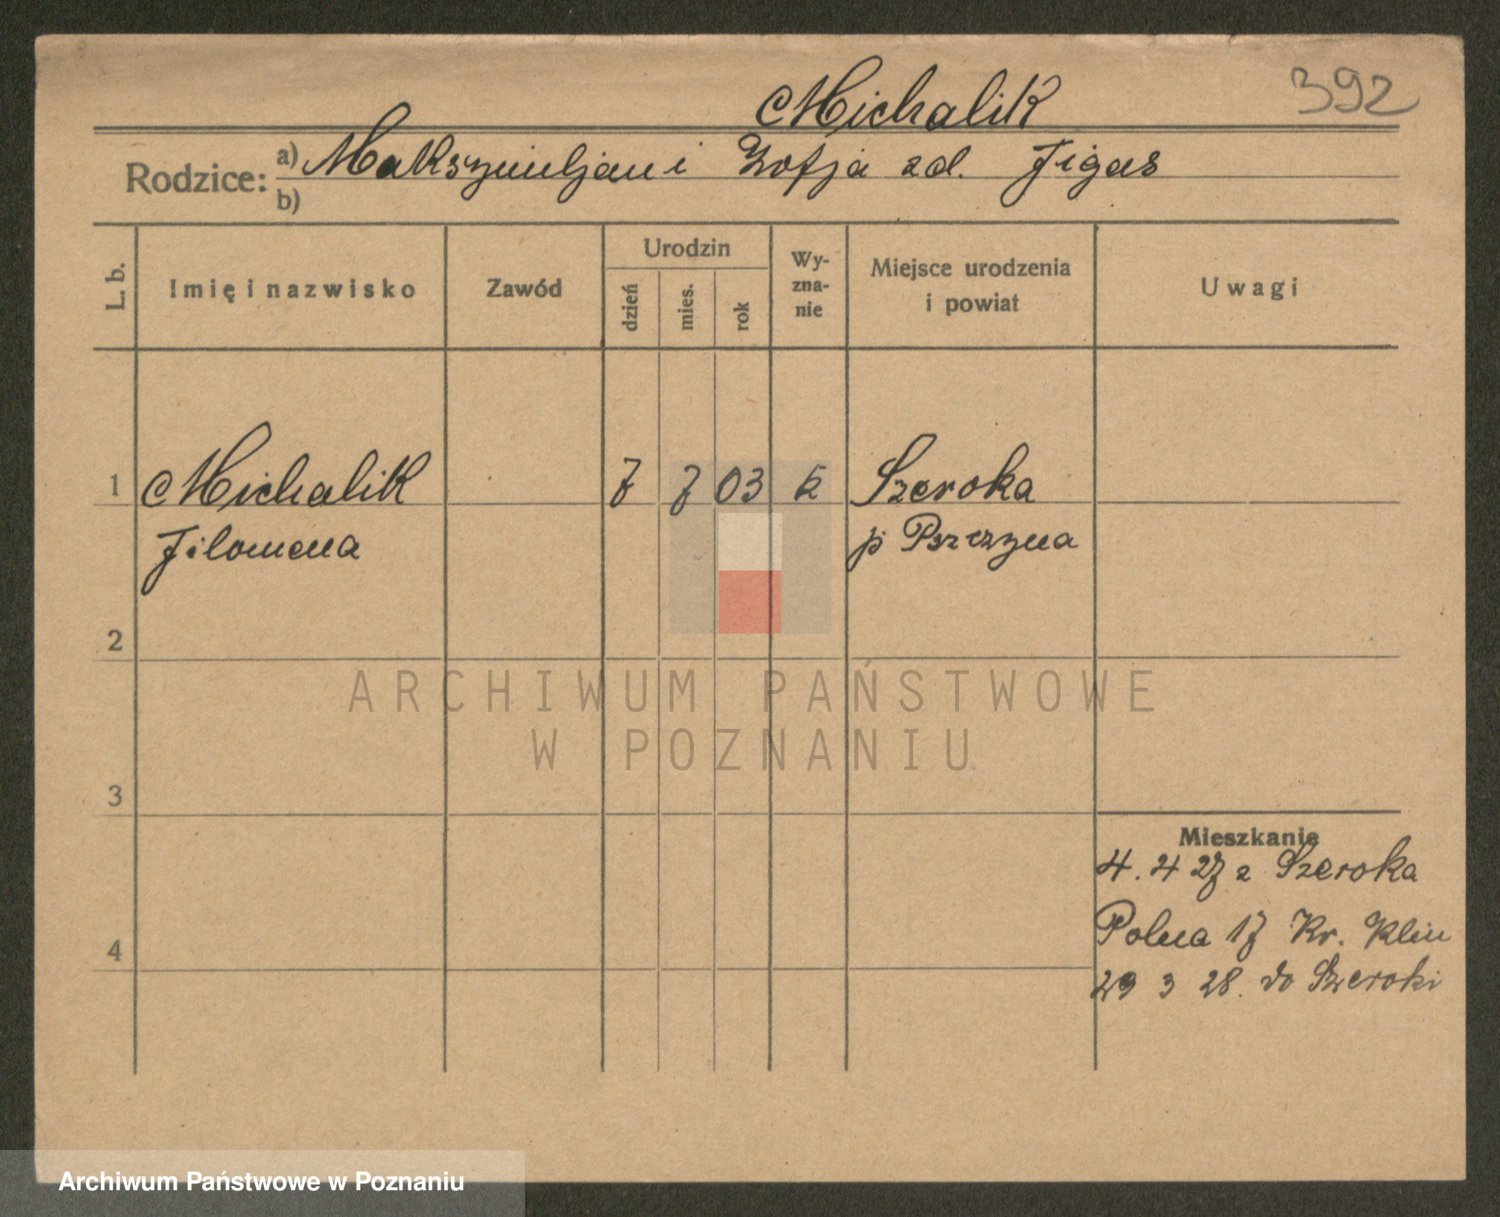 392
Michalik
Rodzice: a) Makszymiljan i Zofja zd. Figas
b)
L. b. Imię i nazwisko Zawód Urodzin dzień mies. rok Wy-zna-nie Miejsce urodzenia i powiat Uwagi
1 Michalik 7 7 03 k Szeroka
Filomena p Pszczyna
2
3
Mieszkanie
4. 4 27 z Szeroka
Polna 17 Kr. Klin
4
29 3 28. do Szeroki
ARCHIWUM PAŃSTWOWE
W POZNANIU
Archiwum Państwowe w Poznaniu